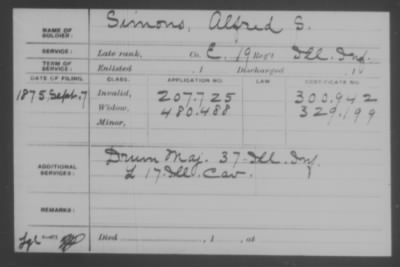 NAME OF SOLDIER: Simons, Alfred S.
SERVICE: Late rank, Co. E, 19 Reg't Ill. Inf.
TERM OF SERVICE: Enlisted , 1 Discharged , 1
DATE OF FILING. CLASS. APPLICATION NO. LAW CERTIFICATE NO.
1875 Sept. 7 Invalid, 207.725 300.942
Widow, 480.488 329.199
Minor,
ADDITIONAL SERVICES: Drum Maj. 37 Ill. Inf.
L 17 Ill. Cav.
REMARKS:
Died , 1 , at